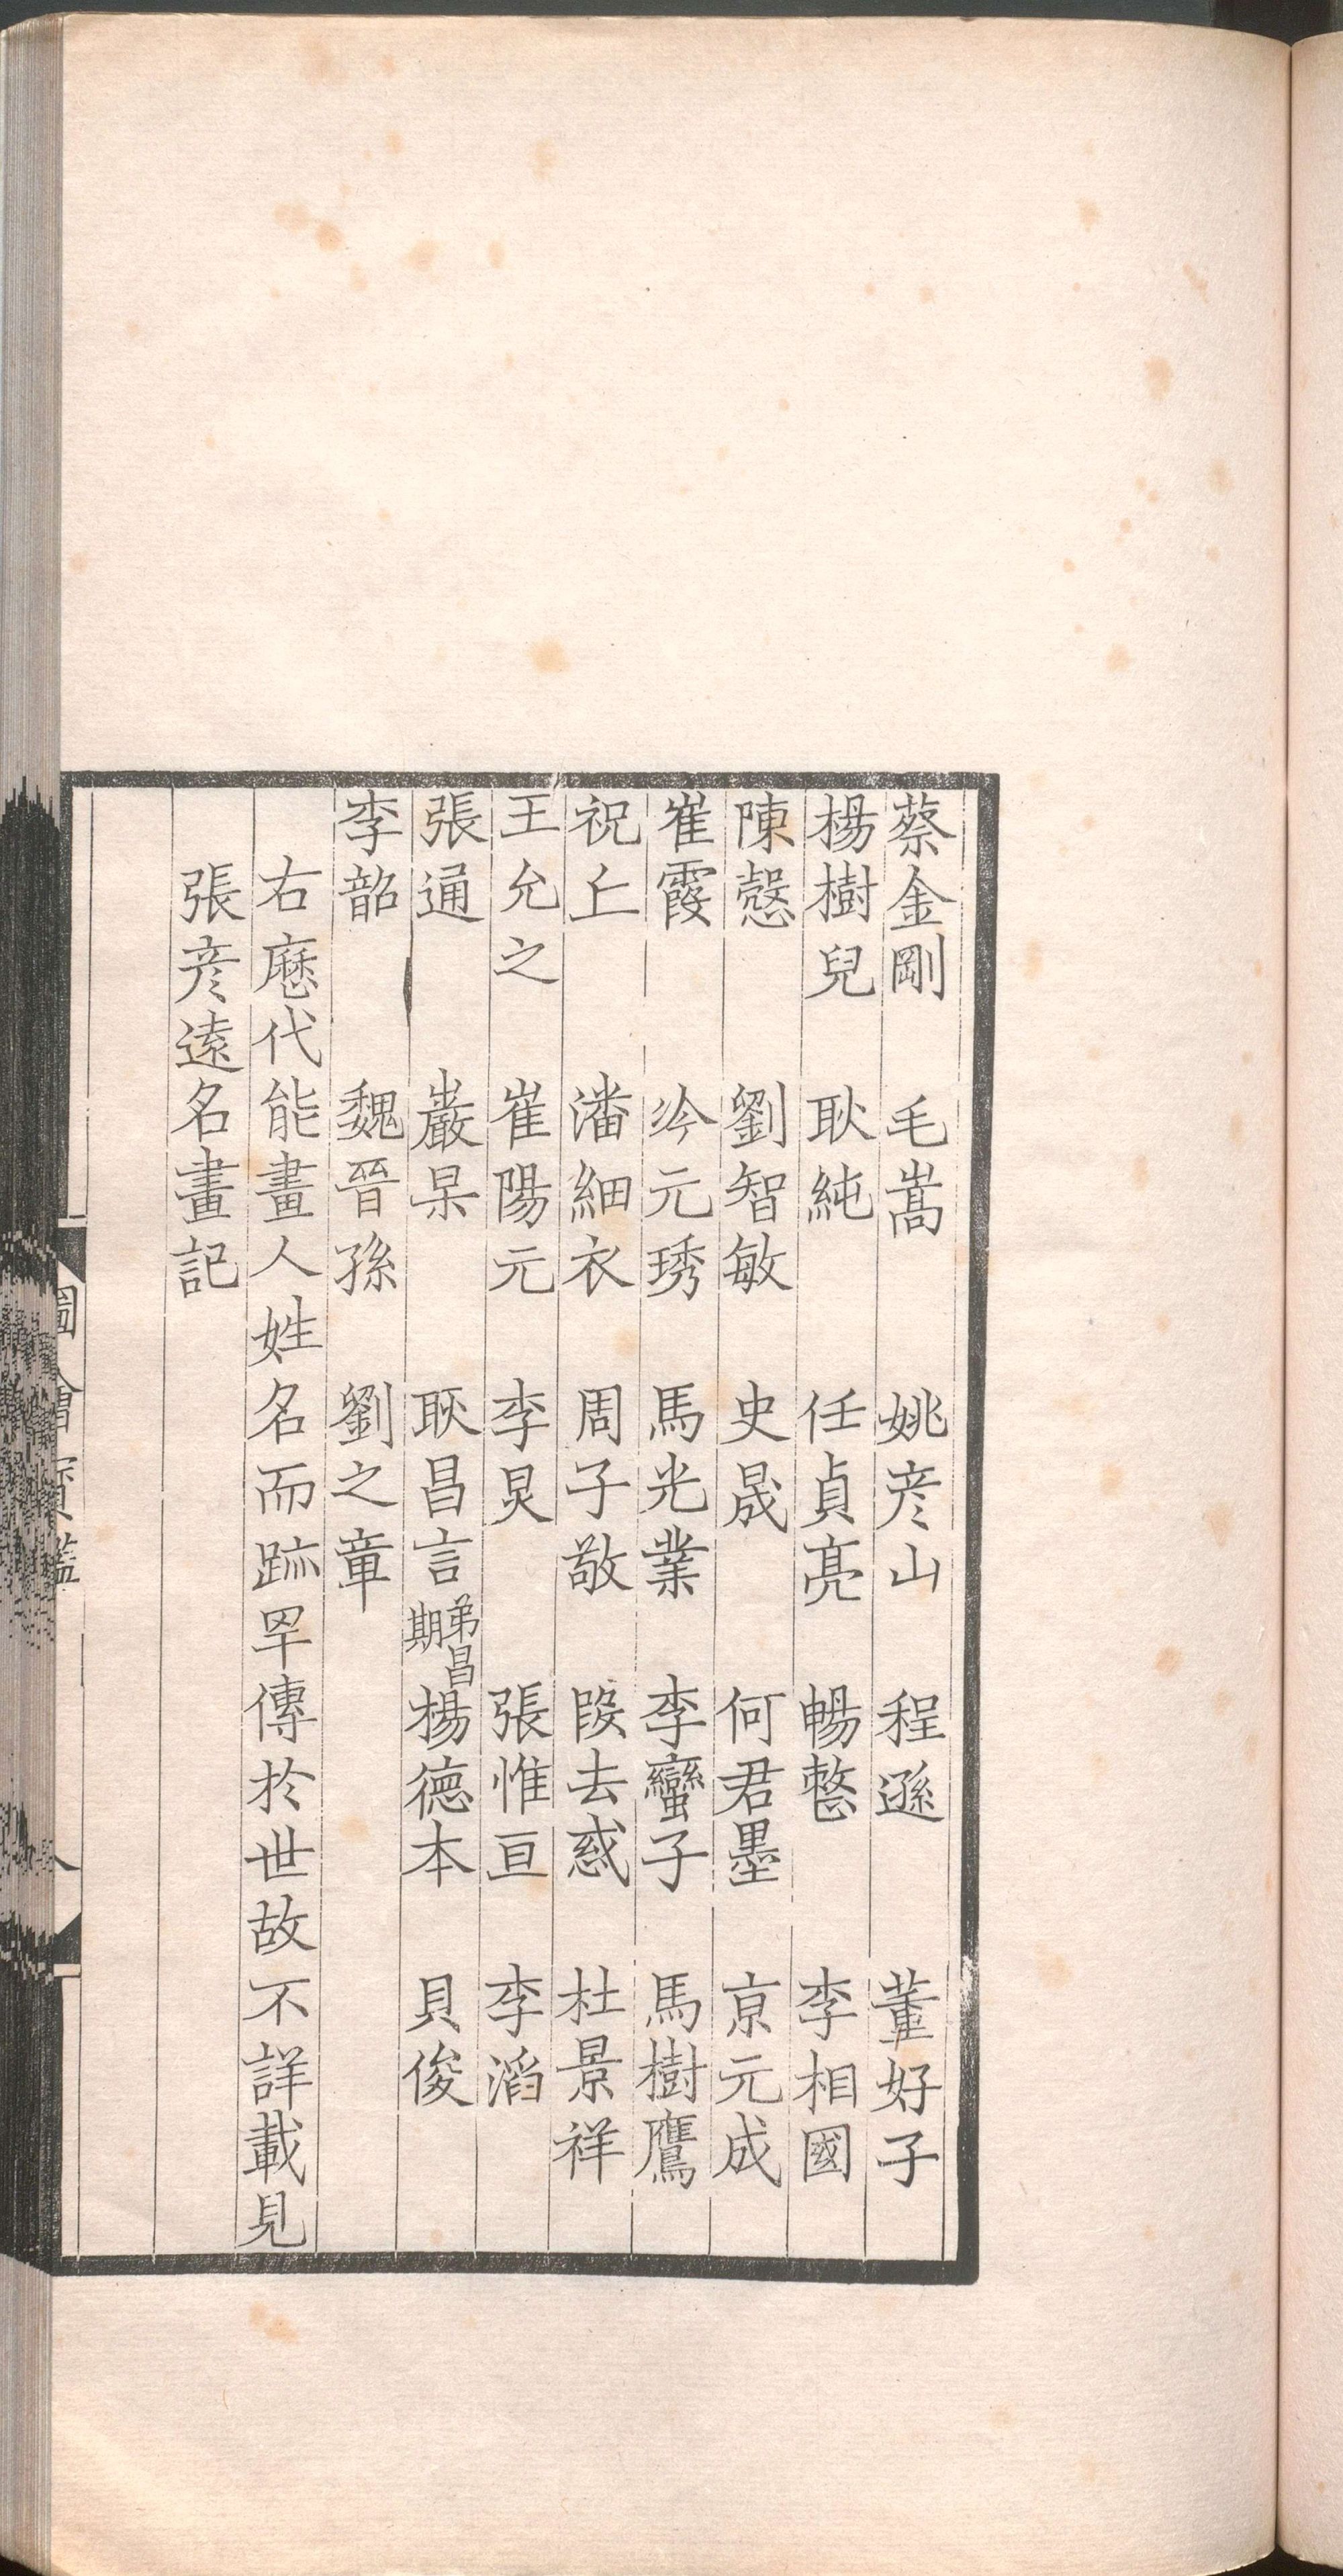 蔡金剛　毛嵩　姚彦山　程遜　董好子
楊樹兒　耿純　任貞亮　暢整　李相國
陳慤　劉智敏　史晟　何君墨　京元成
崔霞　元琇　馬光業　李蠻子　馬樹鷹
祝丘　潘細衣　周子敬　段去惑　杜景祥
王允之　崔陽元　李炅　張惟亘　李滔
張通　巖杲　耿昌言弟昌期　楊德本　貝俊
李韶　魏晉孫　劉之章
右歷代能畫人姓名而跡罕傳於世故不詳載見
張彦遠名畫記
圖繪寶鑑